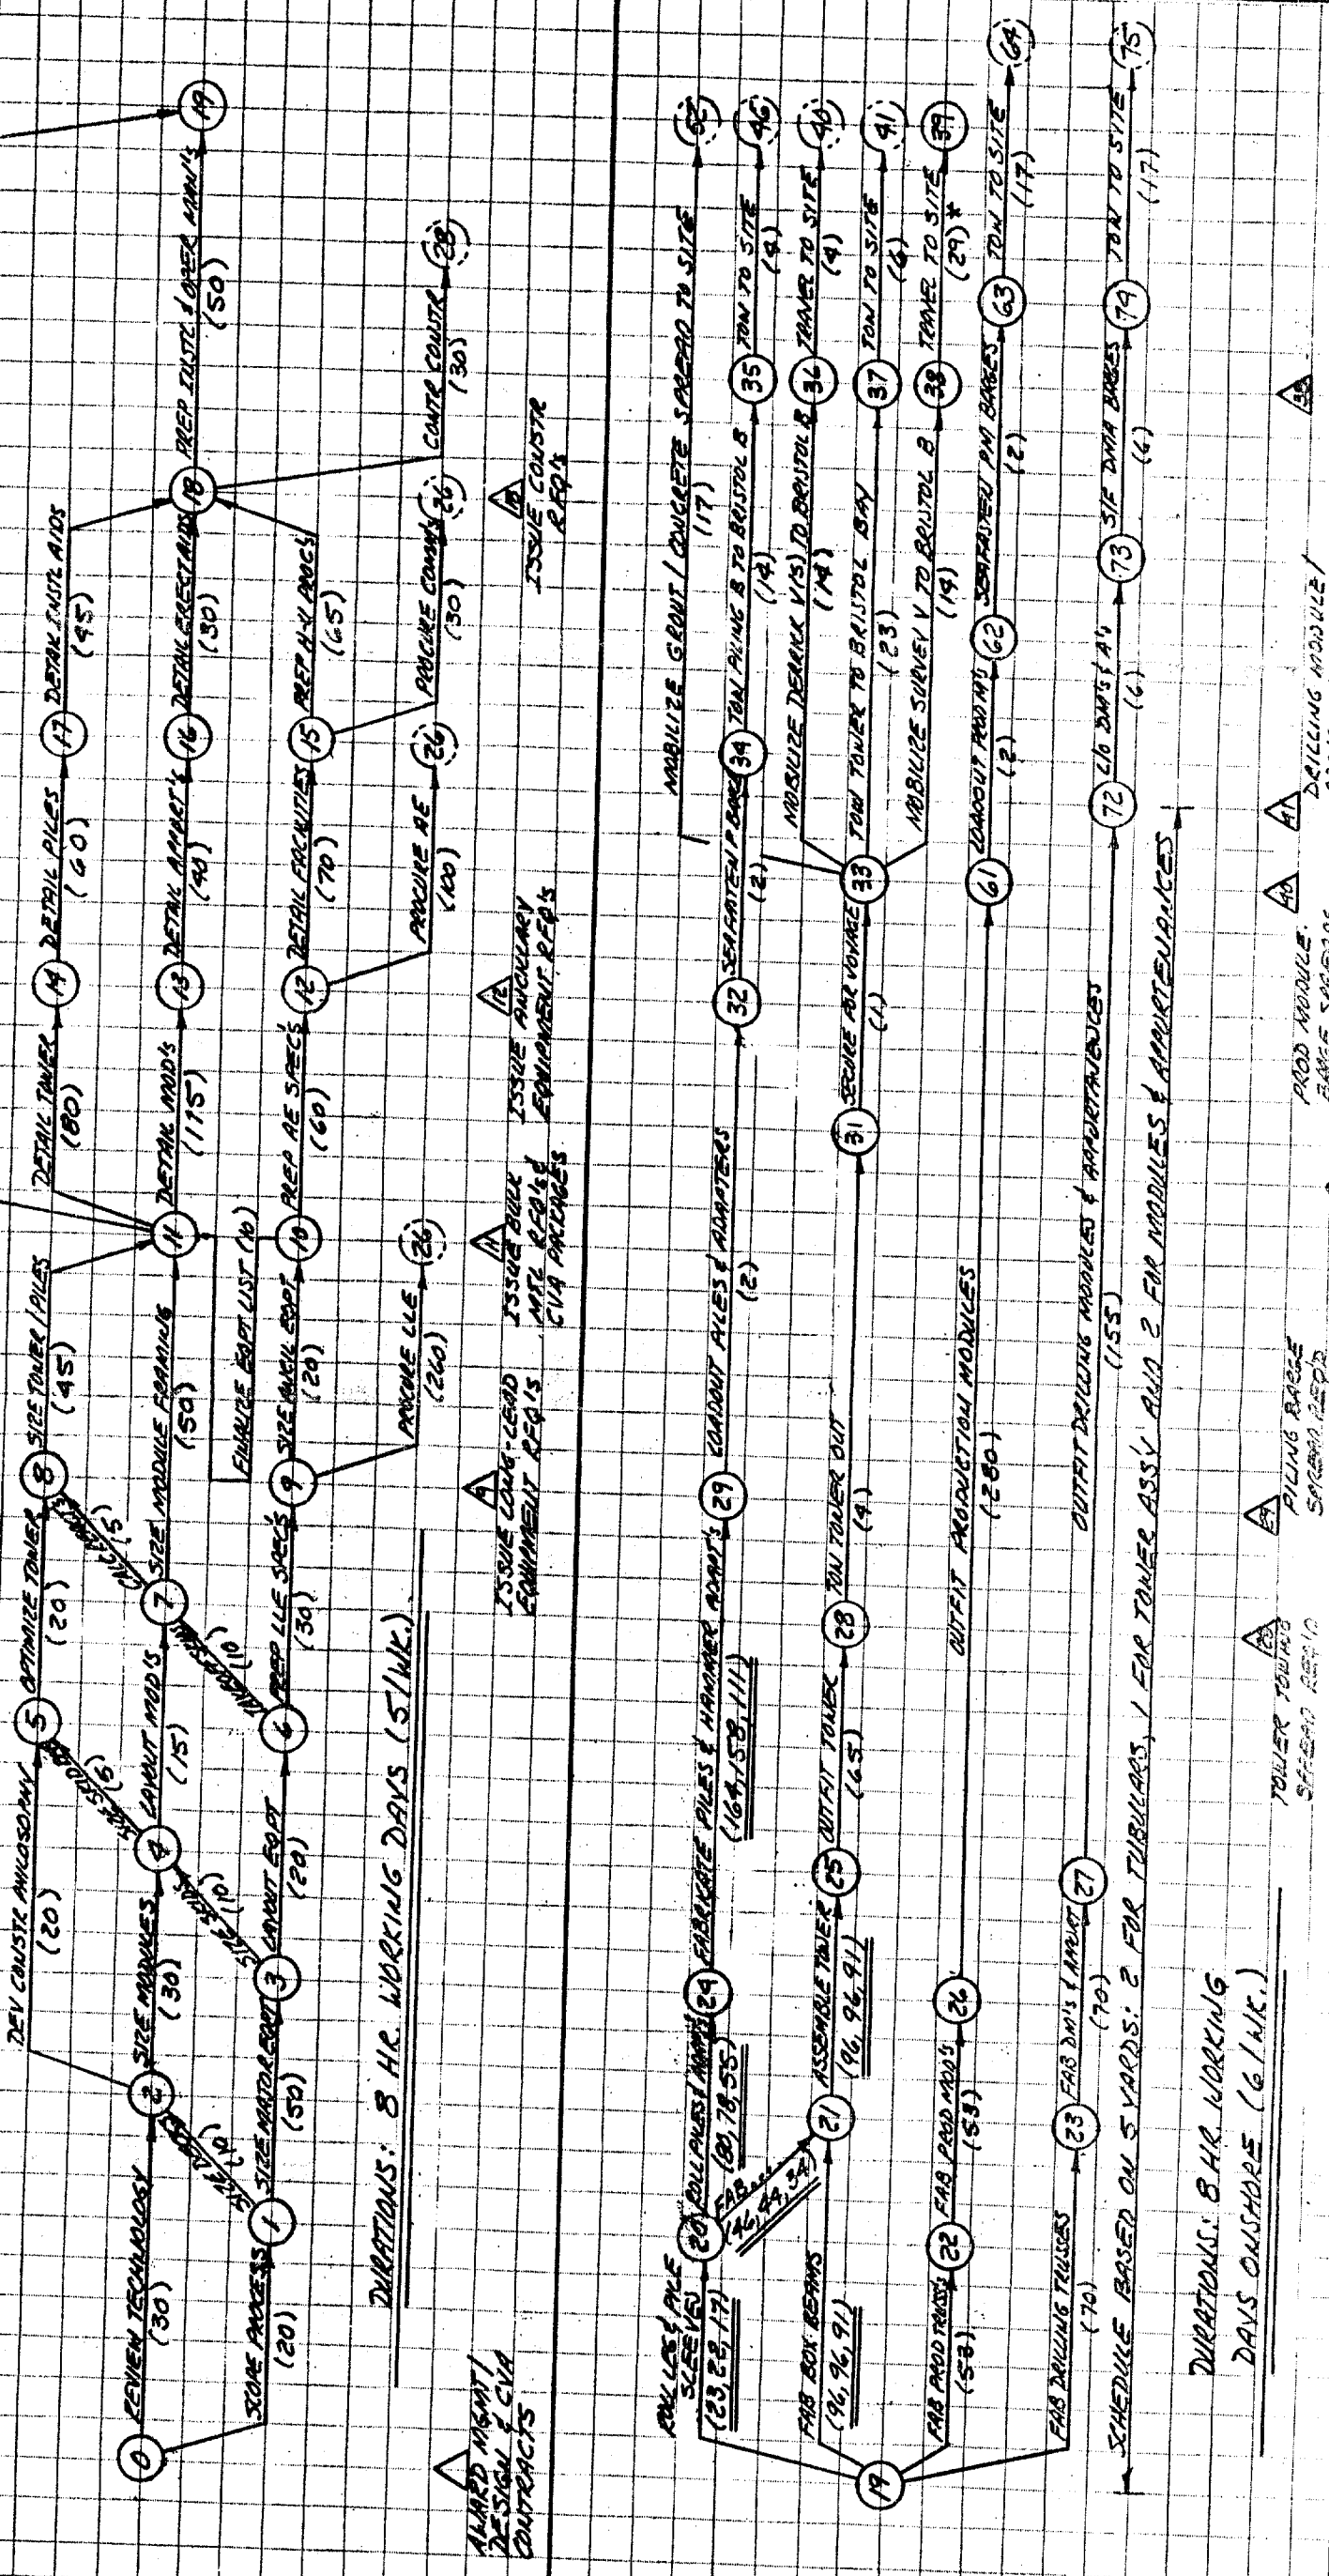 DEV CONSTR PHILOSOPHY
(20)
5
OPTIMIZE TOWER
(20)
8
SIZE TOWER / PILES
(45)
DETAIL TOWER
(80)
14
DETAIL PILES
(60)
17
DETAIL INSTL AIDS
(45)
0
REVIEW TECHNOLOGY
(30)
2
SIZE MODULES
(30)
4
LAYOUT MOD'S
(15)
7
SIZE MODULE FRAMING
(50)
11
DETAIL MOD'S
(175)
13
DETAIL APPURT'S
(40)
16
DETAIL ERECT AIDS
(30)
18
PREP INSTL & OPER MAN'S
(50)
19
(10)
(10)
(5)
(10)
(5)
FINALIZE EQPT LIST (10)
SCOPE PROCESS
(20)
1
SIZE MAJOR EQPT
(50)
3
LAYOUT EQPT
(20)
6
PREP LLE SPEC'S
(30)
9
SIZE ANCIL EQPT
(20)
10
PREP AE SPEC'S
(60)
12
DETAIL FACILITIES
(70)
15
PREP H-U PROC'S
(65)
PROCURE LLE
(260)
26
PROCURE AE
(100)
26
PROCURE COMM'S
(30)
26
CONTR CONSTR
(30)
28
DURATIONS: 8 HR. WORKING DAYS (5/WK.)
AWARD MGMT/
DESIGN & CVA
CONTRACTS
9
ISSUE LONG-LEAD
EQUIPMENT RFQ'S
11
ISSUE BULK
MTL RFQ'S &
CVA PACKAGES
12
ISSUE ANCILLARY
EQUIPMENT RFQ'S
18
ISSUE CONSTR
RFQ'S
MOBILIZE GROUT / CONCRETE SPREAD TO SITE
(17)
ROLL LEG & PILE
SLEEVES
(23, 22, 17)
20
ROLL PILES & ADAPT'S
(80, 78, 55)
24
FABRICATE PILES & HAMMER ADAPT'S
(164, 158, 111)
29
LOADOUT PILES & ADAPTERS
(2)
32
SEAFASTEN P BARGE
(2)
34
TOW PILING B TO BRISTOL B
(14)
35
TOW TO SITE
(4)
46
MOBILIZE DERRICK V(S) TO BRISTOL B
(14)
36
TRAVEL TO SITE
(4)
40
FAB
(46, 44, 34)
FAB BOX BEAMS
(96, 96, 91)
21
ASSEMBLE TOWER
(96, 96, 91)
25
OUTFIT TOWER
(65)
28
TOW TOWER OUT
(4)
31
SECURE FOR VOYAGE
(1)
33
TOW TOWER TO BRISTOL BAY
(23)
37
TOW TO SITE
(6)
41
MOBILIZE SURVEY V TO BRISTOL B
(14)
38
TRAVEL TO SITE
(29)*
39
19
FAB PROD TRUSS'S
(53)
22
FAB PROD MOD'S
(53)
26
OUTFIT PRODUCTION MODULES
(280)
61
LOADOUT PROD M'S
(2)
62
SEAFASTEN PM BARGES
(2)
63
TOW TO SITE
(17)
64
FAB DRILLING TRUSSES
(70)
23
FAB DM'S & APPURT
(70)
27
OUTFIT DRILLING MODULES & APPURTENANCES
(155)
72
L/O DM'S & A'S
(6)
73
S/F DMA BARGES
(6)
74
TOW TO SITE
(17)
75
SCHEDULE BASED ON 5 YARDS: 2 FOR TUBULARS, 1 FOR TOWER ASS'Y AND 2 FOR MODULES & APPURTENANCES
DURATIONS: 8 HR. WORKING
DAYS ONSHORE (6/WK.)
TOWER TOWING
SPREAD REQ'D
29
PILING BARGE
SPREAD REQ'D
40
PROD MODULE
BARGE SPREADS
41
DRILLING MODULE /